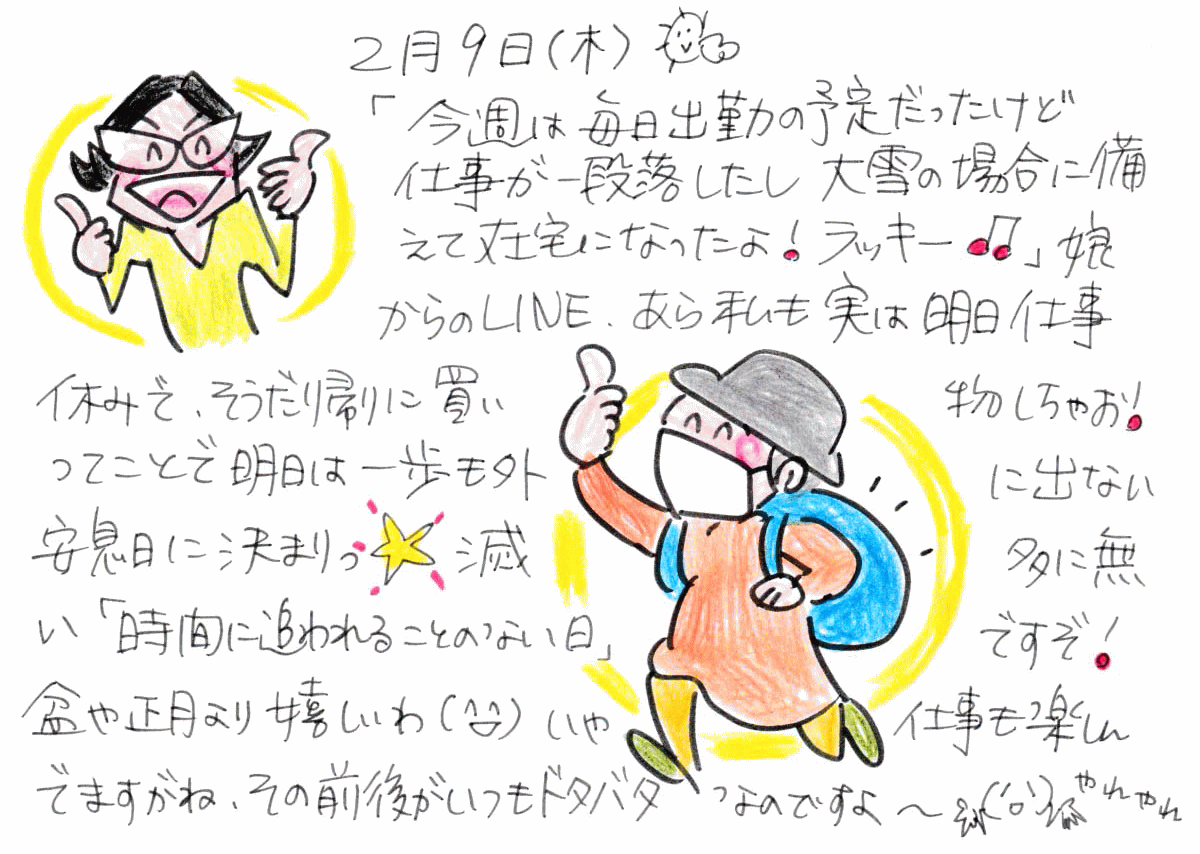 2月9日(木)
「今週は毎日出勤の予定だったけど
仕事が一段落したし大雪の場合に備
えて在宅になったよ!ラッキー♫」娘
からのLINE.あら私も実は明日仕事
休みで、そうだり帰りに買い物しちゃお!
ってことで明日は一歩も外に出ない
安息日に決まりっ☆滅多に無
い「時間に追われることのない日」ですぞ!
盆や正月より嬉しいわ(^^)いや仕事も楽しん
でますがね、その前後がいつもドタバタなのですよ〜('o')やれやれ